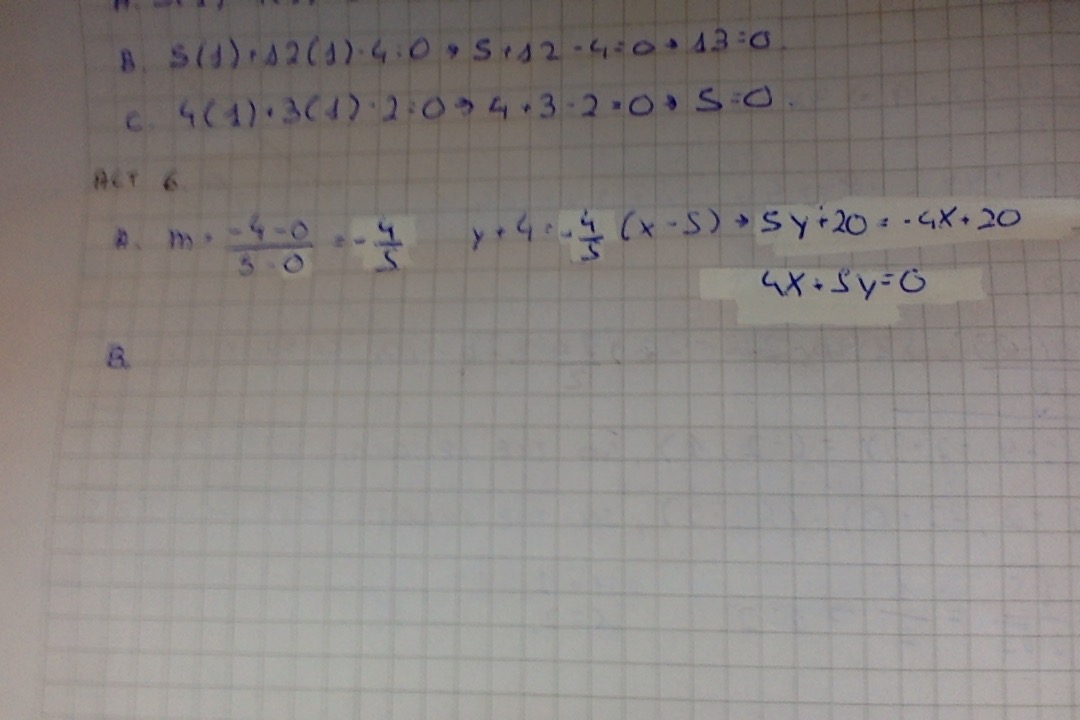 B. 5(1)+12(1)-4=0 → 5+12-4=0 → 13=0.
C. 4(1)+3(1)-2=0 → 4+3-2=0 → 5=0.
ACT 6
A. m = \frac{-4-0}{5-0} = -\frac{4}{5} y+4=-\frac{4}{5}(x-5) → 5y+20=-4x+20
4x+5y=0
B.